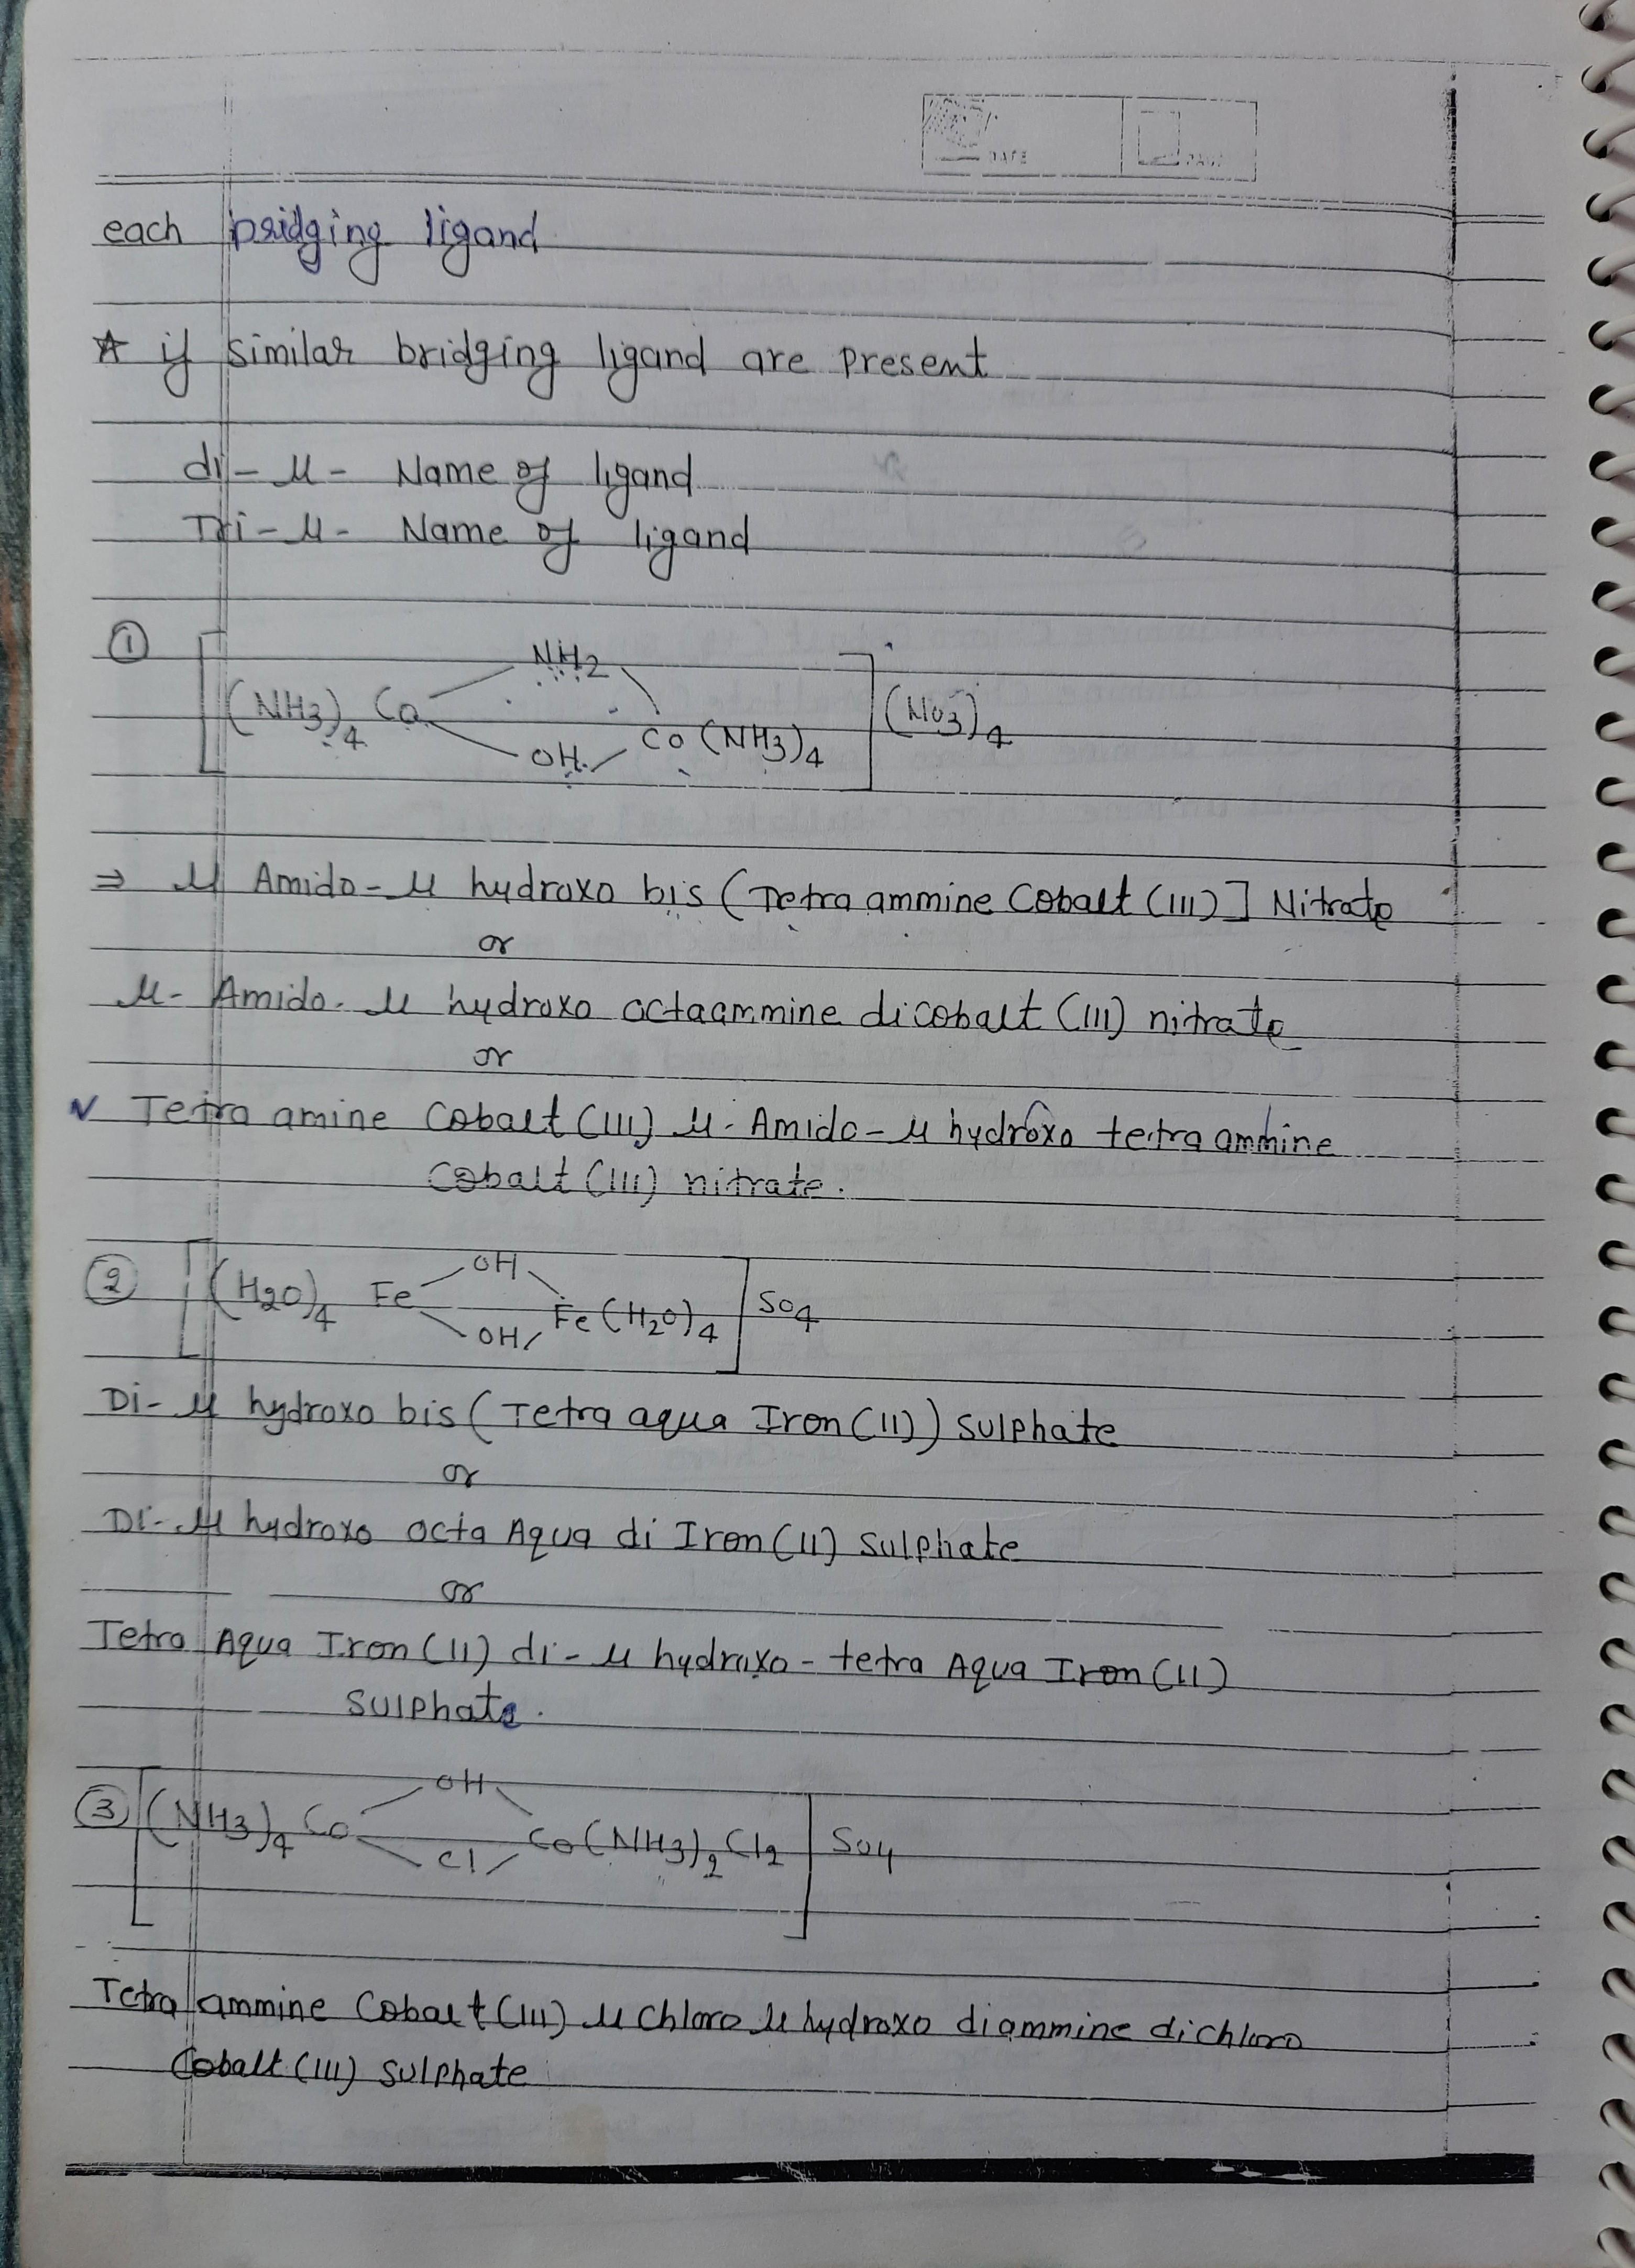 DATE
PAGE
each bridging ligand
★ if similar bridging ligand are present
di - μ - Name of ligand
Tri - μ - Name of ligand
① [(NH3)4 Co NH2 OH Co (NH3)4] (No3)4
⇒ μ Amido - μ hydroxo bis (Tetra ammine Cobalt (III)] Nitrate
or
μ - Amido - μ hydroxo octaammine dicobalt (III) nitrate
or
✓ Tetra amine Cobalt (III) μ - Amido - μ hydroxo tetra ammine
Cobalt (III) nitrate.
② [(H2O)4 Fe OH OH Fe (H2O)4] So4
Di - μ hydroxo bis (Tetra aqua Iron (II)) Sulphate
or
Di - μ hydroxo octa Aqua di Iron (II) Sulphate
or
Tetra Aqua Iron (II) di - μ hydroxo - tetra Aqua Iron (II)
Sulphate.
③ [(NH3)4 Co OH Cl Co (NH3)2 Cl2] So4
Tetra ammine Cobalt (III) μ Chloro μ hydroxo diammine dichloro
Cobalt (III) Sulphate